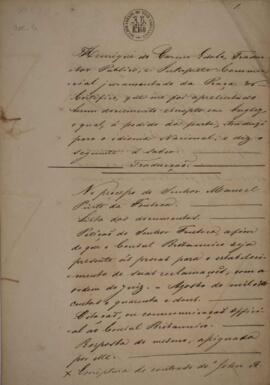 1.
Henrique do Carmo Edolo, Tradu-
ctor Publico, e Interprete Commer-
cial juramentado da Praça &c
Certifico, que me foi apresentado
hum documento escripto em Inglez
o qual, á pedido da parte, traduzi
para o idioma Nacional, e diz o
seguinte a saber.
Traducção.
No processo do Senhor Manoel
Pinto da Fonseca.
Lista dos documentos.
Petição do Senhor Fonseca, afim
de que o Consul Britannico seja
presente ás provas para o estabeleci-
mento de suas reclamações, com a
ordem do Juiz. = Agosto de mil oito
centos e quarenta e dous.
Citação, ou communicação Offici-
al ao Consul Britannico.
Resposta do mesmo, assignada
por elle.
x Escriptura de contracto de John A